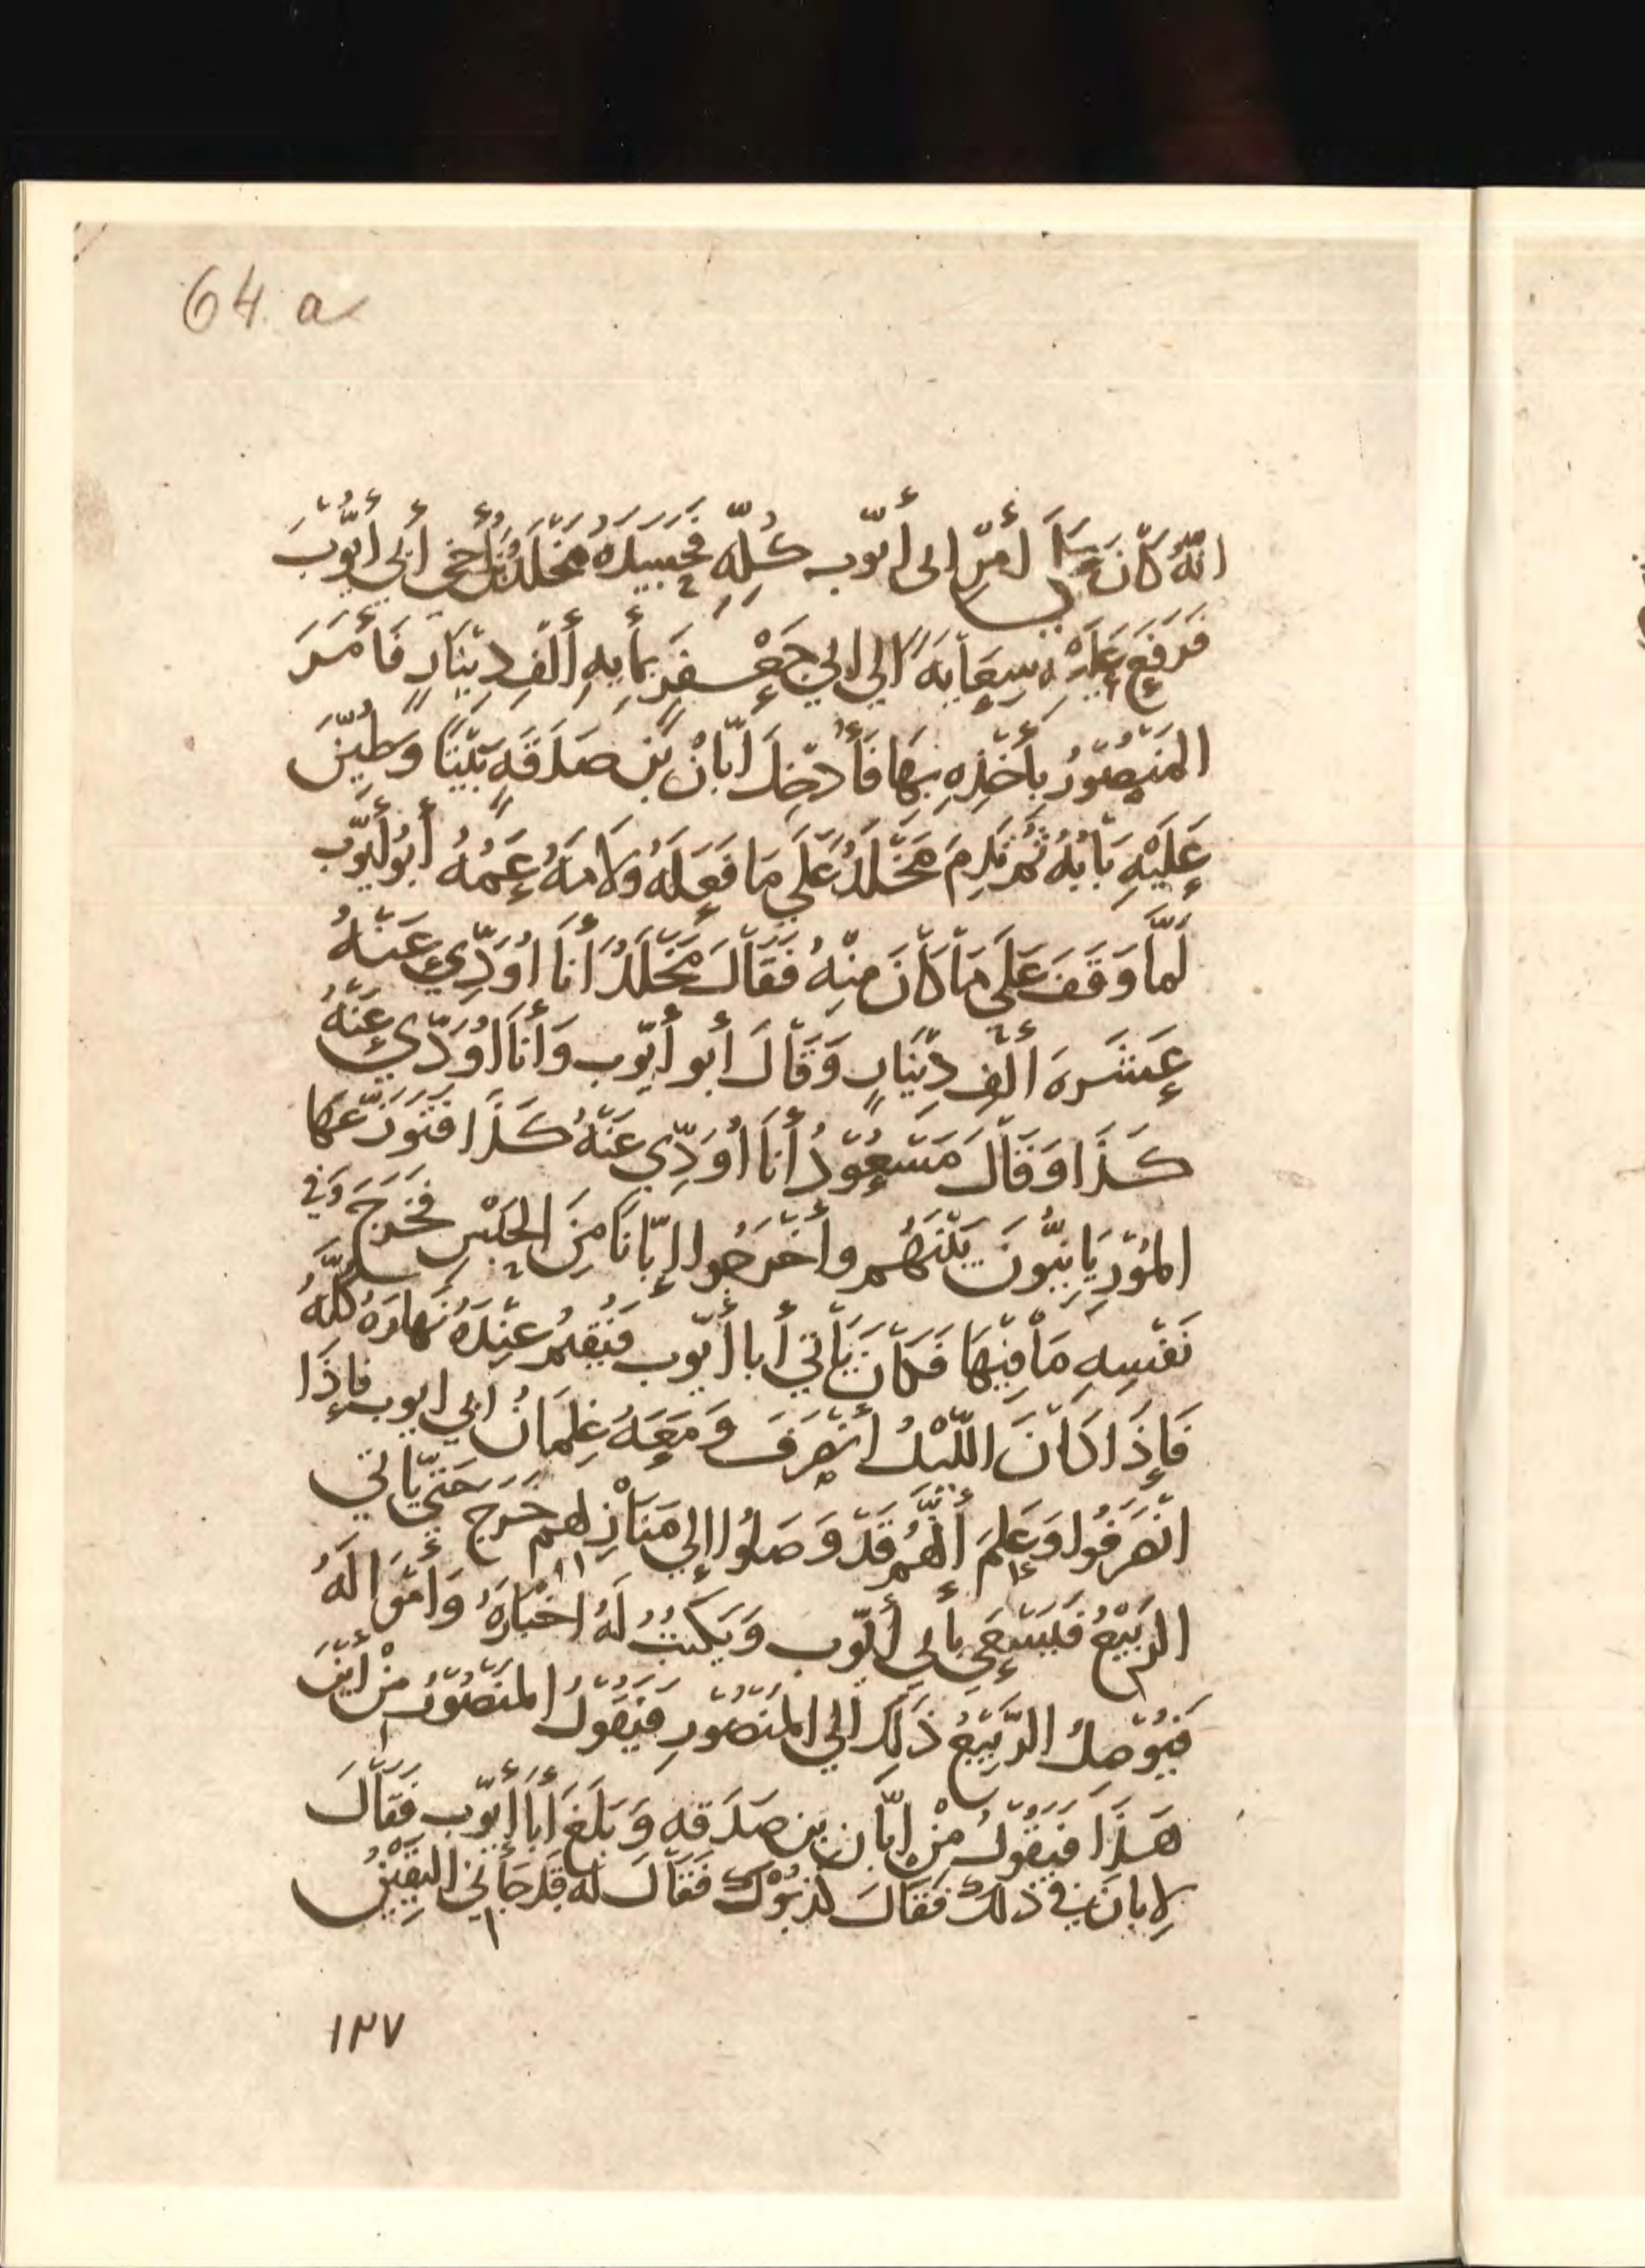 64 a
اللهُ كَانَ أمْرِ إلى أيّوب كُلِّهِ فَحَسِيَدَهُ مَخْلَدُ بْنُ أَخِي أَبي أَيُّوبَ
فَرَفَعَ عَلَيْهِ سِعَايَةً إلي ابي جَعْفَرَ بمأيهِ أَلْفِ دِيْنَارٍ فَأَمَرَ
المَنْصُوْرُ بِأَخْذِهِ بِهَا فَأُدْخِلَ أَبَانْ بْنِ صَدَقَةٍ بَيْتًا وَطُيِّنَ
عَلَيْهِ بَابُهُ ثُمَّ نَدِمَ مَخْلَدُ عَلَي مَا فَعَلَهُ وَلَامَهُ عَمُّهُ أَبُو أَيّوب
لَمَّا وَقَفَ عَلَى مَا كَانَ مِنْهُ فَقَالَ مَخْلَدُ أَنَا اوَدِّي عَنْهُ
عَشَرَهَ أَلْفِ دِيْنَارٍ وَقَالَ أبو أَيّوب وَأَنَا اُوَدّي عَنْهُ
كَذَا وَقَالَ مَسْعُوْدُ أَنَا اُوَدِّي عَنْهُ كَذَا فَتَوَزَّعَهَا
المُوْرِيَانِيُّونَ بَيْنَهُم وأَخْرَجُوا إبّانًا مِنَ الحَبْسِ فَخَرَجَ وَفي
نَفْسِهِ مَا فِيْهَا فَكَانَ يَأْتي أَبا أَيّوب فَيُقِيْمُ عِنْدَهُ نَهَارَهُ كُلَّهُ
فَإِذَا كَانَ اللَّيْلُ أَنْصَرَفَ وَمَعَهُ غِلمَانُ ابي ايوب فَإِذَا
انْصَرَفُوا وَعَلِمَ أَنَّهُم قَدْ وَصَلُوا إلي مَنَازِلهم خَرَجَ حَتَّي يَاتي
الرَبيْعُ فَيَسْعَي بأَبي أَيّوب وَيَكْتُبُ لَهُ اخْبَارَهُ وَامْوَالَهُ
فَيُوْصِلُ الرَّبِيْعُ ذَلِكَ الي المَنْصُوْرِ فَيَقُوْلُ المَنْصُوْرُ مِنْ أَيْنَ
هَذَا فَيَقُوْلُ مِنْ إبّان بن صَدَقه وَبَلَغَ أَبَا أَيّوب فَقَالَ
لِابان في ذلك فَقَالَ كذبُوْكَ فَقَالَ له قَد جَانِي اليَقِيْنُ
١٢٧